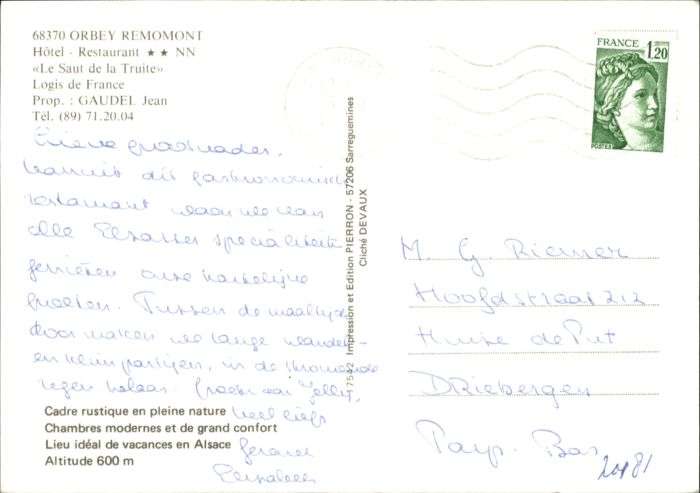 68370 ORBEY REMOMONT
Hôtel - Restaurant ★ ★ NN
«Le Saut de la Truite»
Logis de France
Prop. : GAUDEL Jean
Tél. (89) 71.20.04
Lieve
Vanuit dit gastronomisch
restaurant waar we van
alle Elzasser specialiteiten
genieten onze hartelijke
groeten. Tussen de maaltijden
door maken we lange wandel-
en klimpartijen, in de stromende
regen helaas.
heel liefs
Gerard
Cadre rustique en pleine nature
Chambres modernes et de grand confort
Lieu idéal de vacances en Alsace
Altitude 600 m
7542 Impression et Edition PIERRON - 57206 Sarreguemines
Cliché DEVAUX
FRANCE 1,20
M. G. Riemer
Hoofdstraat 212
Huize de Put
DRIEbergen
Pays-Bas